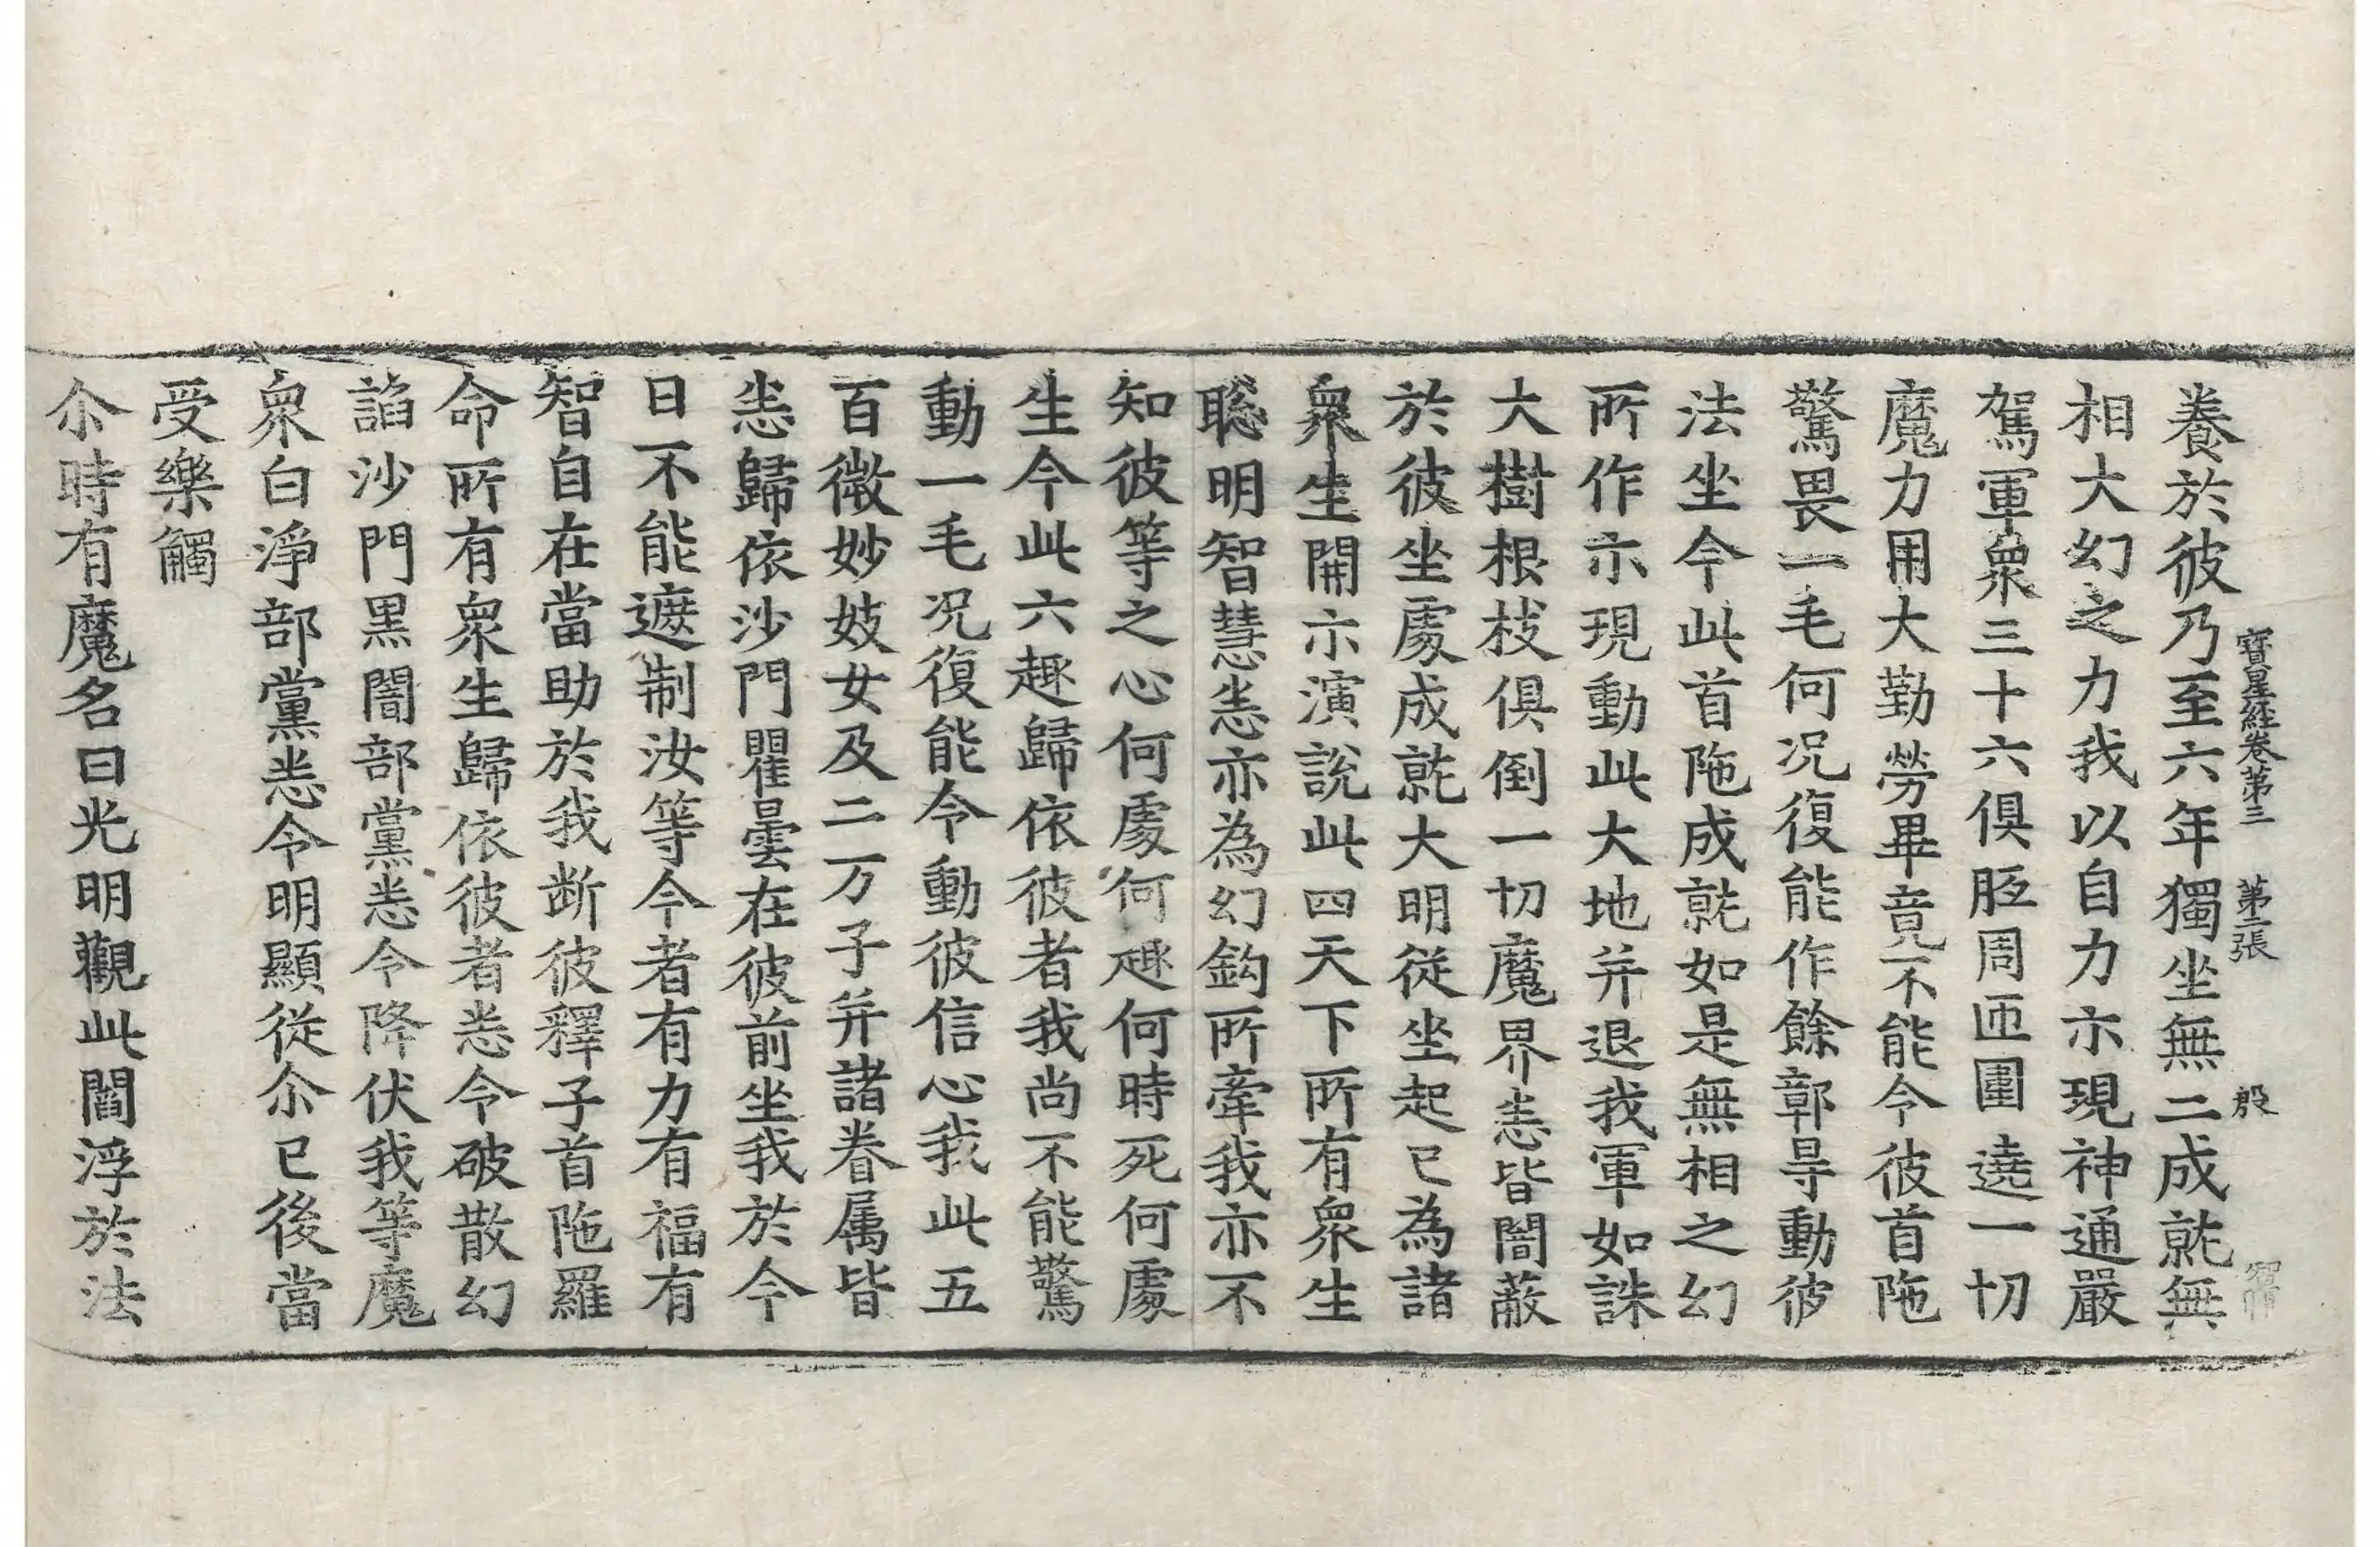 寶星經卷第三　第二張　殷
養於彼乃至六年獨坐無二成就無
相大幻之力我以自力示現神通嚴
駕軍衆三十六俱胝周匝圍遶一切
魔力用大勤勞畢竟不能令彼首陁
驚畏一毛何况復能作餘鄣㝵動彼
法坐今此首陁成就如是無相之幻
所作示現動此大地并退我軍如誅
大樹根枝俱倒一切魔界恙皆闇蔽
於彼坐處成就大明從坐起已為諸
衆生開示演說此四天下所有衆生
聡明智慧恙亦為幻鈎所牽我亦不
知彼等之心何處何趣何時死何處
生今此六趣歸依彼者我尚不能驚
動一毛况復能令動彼信心我此五
百微妙妓女及二万子并諸眷属皆
恙歸依沙門瞿曇在彼前坐我於今
日不能遮制汝等今者有力有福有
智自在當助於我断彼釋子首陁羅
命所有衆生歸依彼者恙令破散幻
諂沙門黒闇部黨恙令降伏我等魔
衆白淨部黨恙令明顯從尒已後當
受樂觸
尒時有魔名曰光明觀此閻浮於法